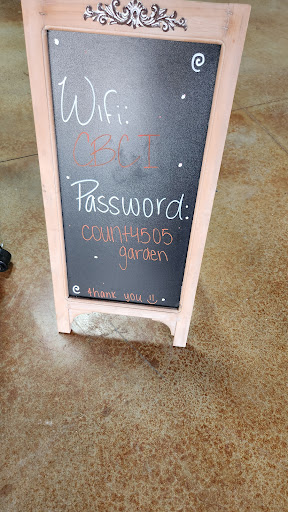 Wifi:
Password:
count4505
garden
thank you